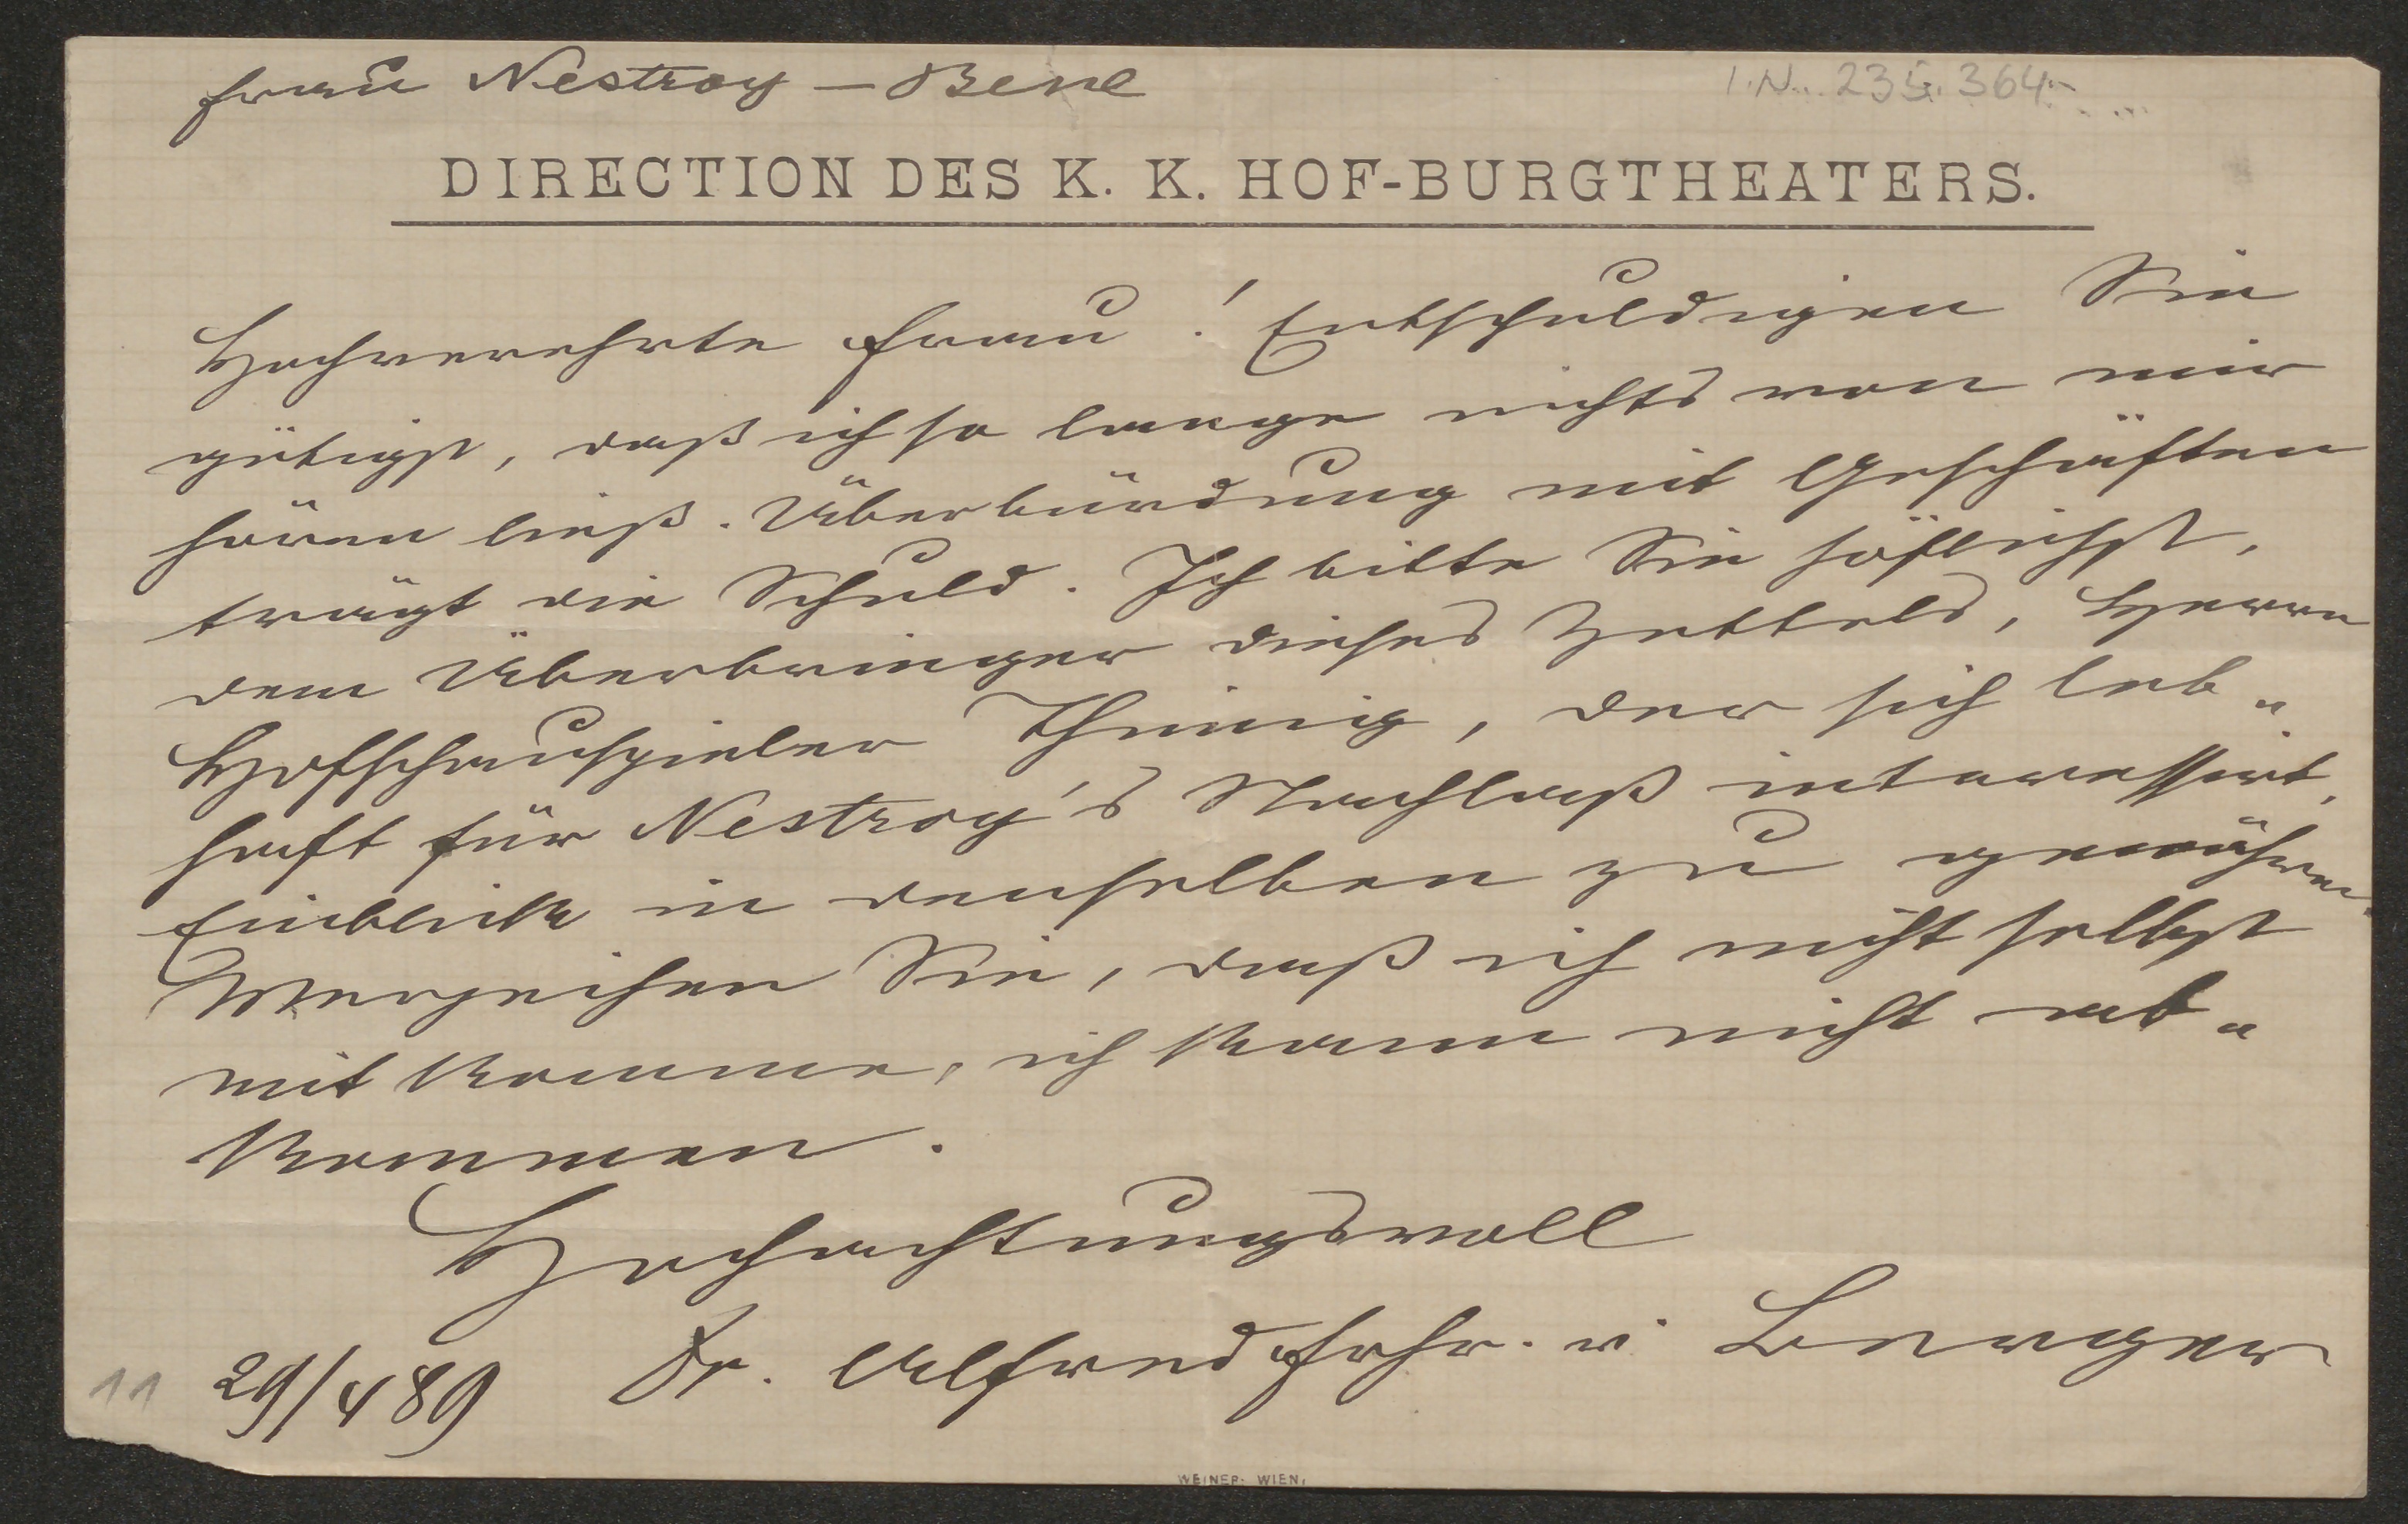 Frau Nestroy – Bene
I.N. 235.364
DIRECTION DES K. K. HOF-BURGTHEATERS.
Hochverehrte Frau! Entschuldigen Sie
gütigst, daß ich so lange nichts von mir
hören ließ. Überbürdung mit Geschäften
trägt die Schuld. Ich bitte Sie höflichst,
dem Überbringer dieses Zettels, Herrn
Hofschauspieler Thimig, der sich leb-
haft für Nestroy's Nachlaß interessirt,
Einblick in denselben zu gewähren.
Verzeihen Sie, daß ich nicht selbst
mit komme, ich kann nicht ab-
kommen.
Hochachtungsvoll
29/4 89 Dr. Alfred Frhr. v. Berger
11
WEINER, WIEN.